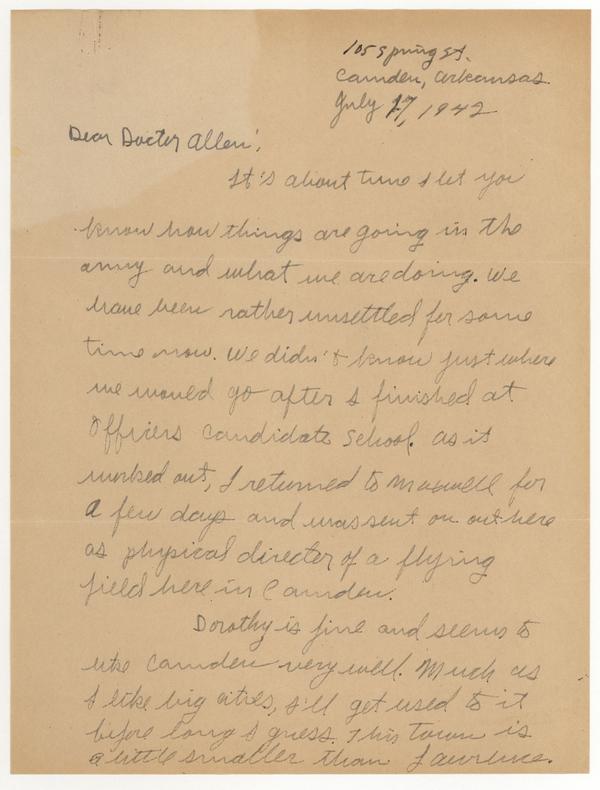 105 Spring St.
Camden, Arkansas
July 27, 1942
Dear Doctor Allen:
It's about time I let you
know how things are going in the
army and what we are doing. We
have been rather unsettled for some
time now. We didn't know just where
we would go after I finished at
Officers Candidate School. As it
worked out, I returned to Maxwell for
a few days and was sent on out here
as physical director of a flying
field here in Camden.
Dorothy is fine and seems to
like Camden very well. Much as
I like big cities, I'll get used to it
before long I guess. This town is
a little smaller than Lawrence.